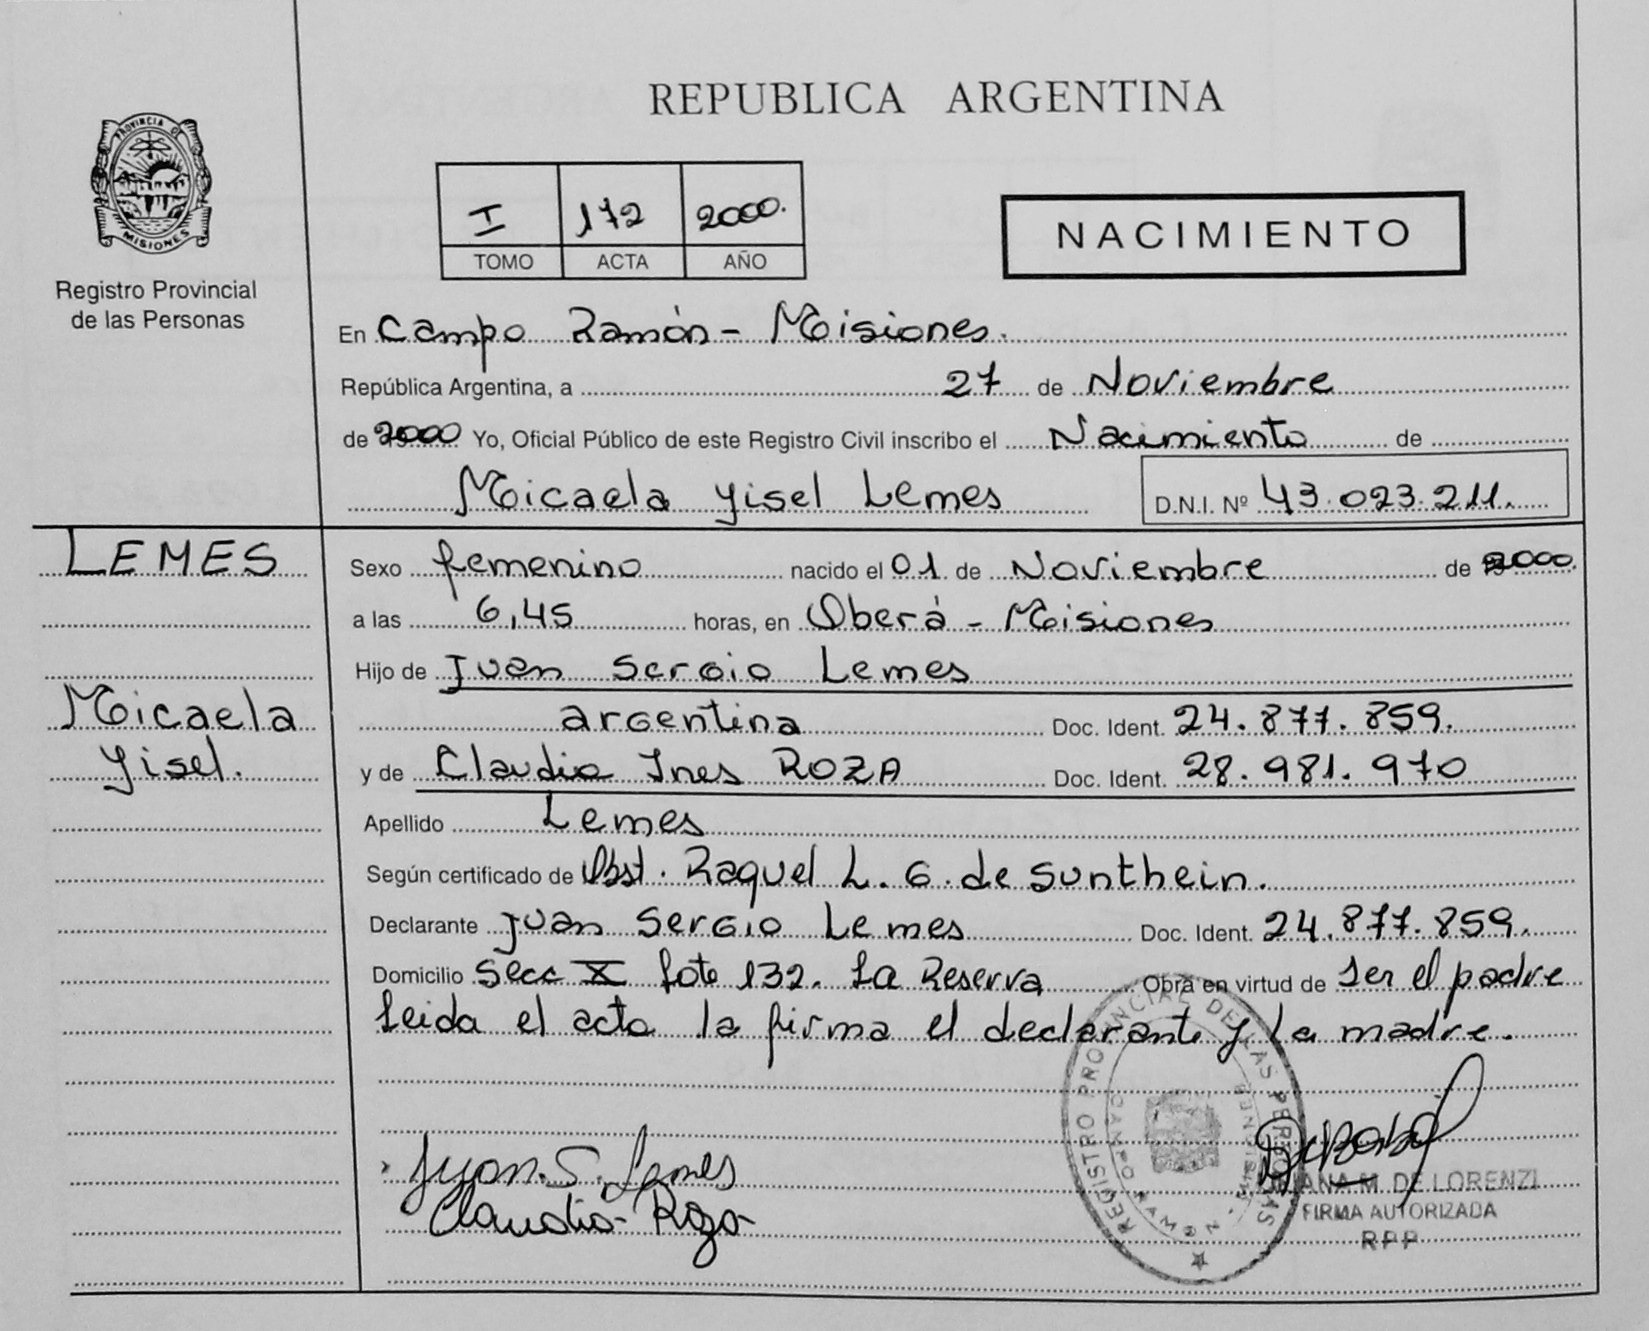 REPUBLICA ARGENTINA
PROVINCIA DE
MISIONES
Registro Provincial
de las Personas
I 172 2000.
TOMO ACTA AÑO
NACIMIENTO
En Campo Ramón - Misiones.
República Argentina, a 27 de Noviembre
de 2000 Yo, Oficial Público de este Registro Civil inscribo el Nacimiento de
Micaela Yisel Lemes D.N.I. Nº 43.023.211.
LEMES
Micaela
Yisel.
Sexo femenino nacido el 01 de Noviembre de 2000.
a las 6,45 horas, en Oberá - Misiones
Hijo de Juan Sergio Lemes
argentina Doc. Ident. 24.877.859.
y de Claudia Ines ROZA Doc. Ident. 28.981.970
Apellido Lemes
Según certificado de Obst. Raquel L. G. de Sunthein.
Declarante Juan Sergio Lemes Doc. Ident. 24.877.859.
Domicilio Secc X Lote 132. La Reserva Obra en virtud de Ser el padre
Leida el acta la firma el declarante y la madre.
Juan S. Lemes
Claudia Roza
REGISTRO PROVINCIAL DE LAS PERSONAS
MISIONES
M. DE LORENZI
FIRMA AUTORIZADA
RPP